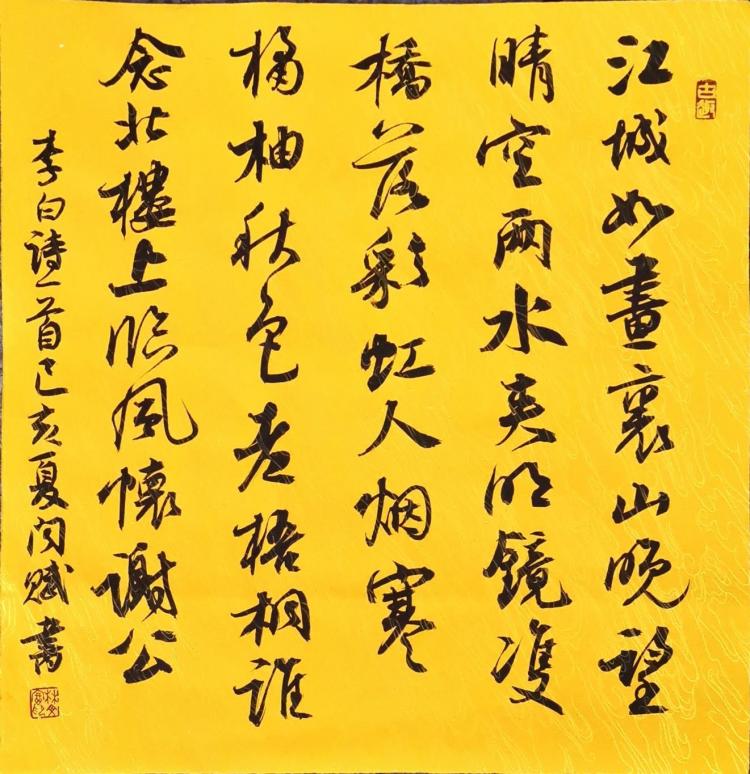 江城如畫裏山晚望
晴空兩水夾明鏡雙
橋落彩虹人烟寒
橘柚秋色老梧桐誰
念北樓上臨風懷謝公
李白詩一首己亥夏賦書